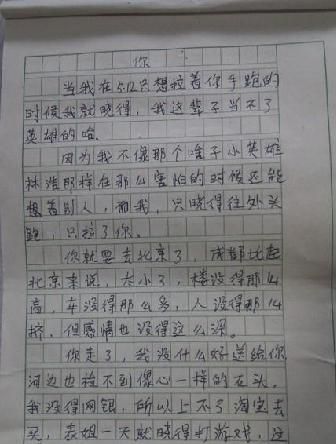 你
当我在5.12只想拉着你手跑的
时候我就晓得，我这辈子当不了
英雄的哈.
因为我不像那个啥子小英雄
林浩那样在那么害怕的时候还能
想着别人，而我，只晓得往外头
跑，只拉了你。
你就要去北京了，成都比起
北京来说，太小了，楼没得那么
高，车没得那么多，人没得那么
挤，但感情也没得这么深。
你走了，我没什么好送给你
河边也找不到像心一样的石头。
我没得网银，所以上不了淘宝去
买，表姐一天就晓得打游戏，这